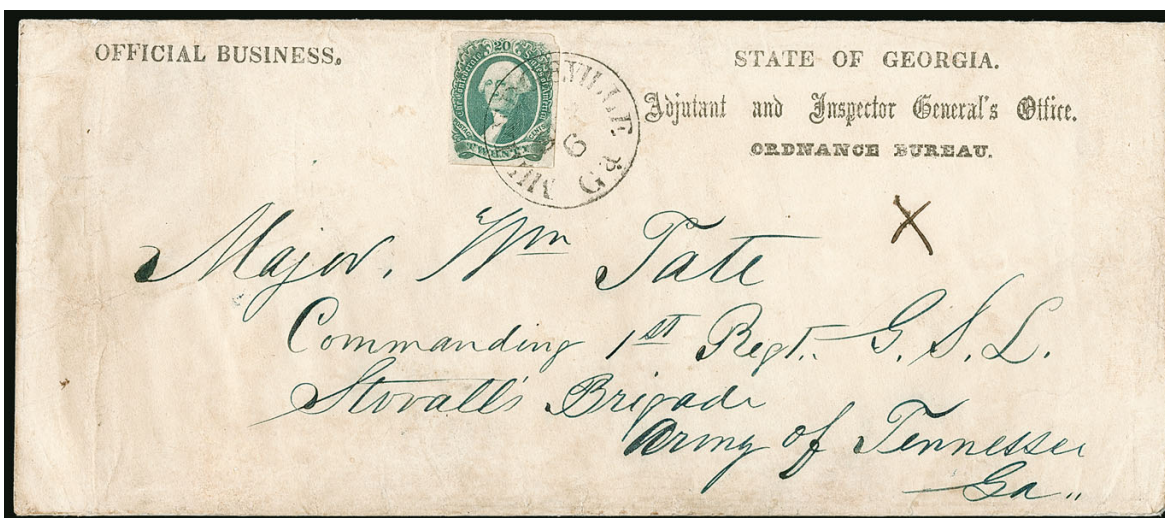 OFFICIAL BUSINESS.
20
Confederate States of America
TWENTY
MILLEDGEVILLE Ga
6
STATE OF GEORGIA.
Adjutant and Inspector General's Office.
ORDNANCE BUREAU.
X
Major. Wm Tate
Commanding 1st Regt. G. S. L.
Stovall's Brigade
Army of Tennessee
Ga..